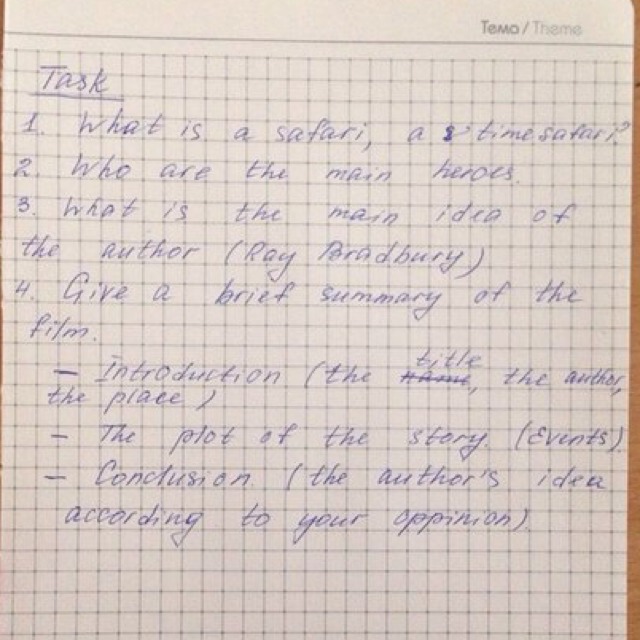 Тема / Theme
Task
1. What is a safari, a time safari?
2. Who are the main heroes.
3. What is the main idea of
the author (Ray Bradbury)
4. Give a brief summary of the
film.
– Introduction (the name title, the author,
the place)
– The plot of the story (Events).
– Conclusion. (the author's idea
according to your oppinion).